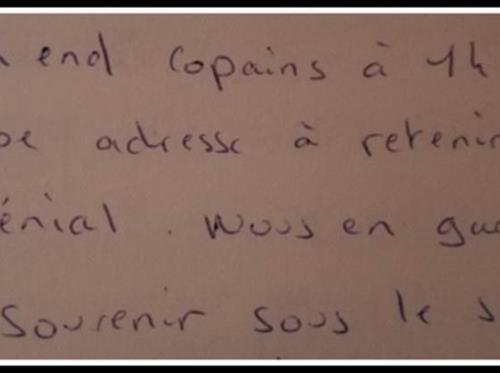 end copains à 1h
adresse à retenir
énial. Nous en gu
souvenir sous le s